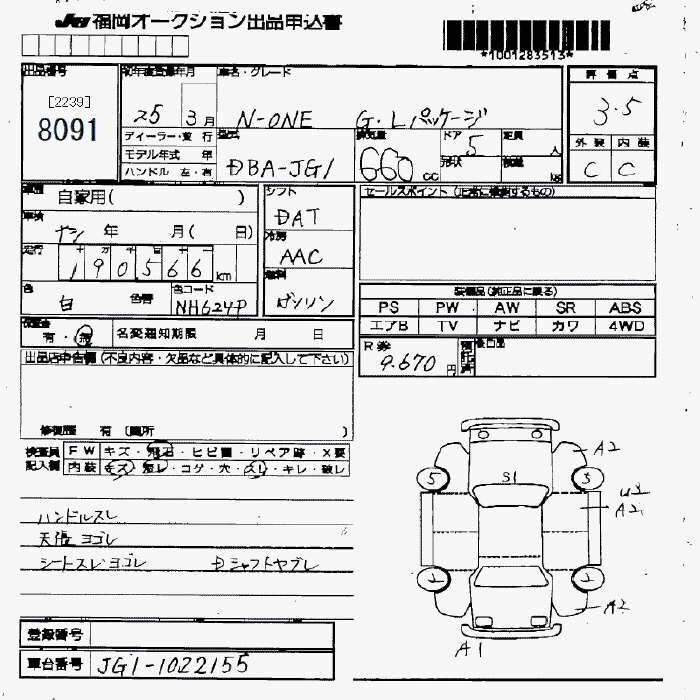 JU 福岡オークション出品申込書
*1001283513*
出品番号 初年度登録年月 車名・グレード 評価点
[2239]
8091
25 3月 N-ONE G・Lパッケージ 3.5
ディーラー・並行 型式 排気量 ドア 定員 外装 内装
モデル年式 年 5 人
ハンドル 左・右 DBA-JG1 660cc 形状 積載 kg C C
車歴 自家用( ) シフト セールスポイント(正常に機能するもの)
DAT
車検 ナシ 年 月( 日) 冷房
AAC
走行 十 万 千 百 十
190566km 燃料
ガソリン
色 白 色替 色コード NH624P
装備品(純正品に限る)
PS PW AW SR ABS
エアB TV ナビ カワ 4WD
保証書 有・無 名変通知期限 月 日
R券 9.670円 預託済 後日品
出品店申告欄(不良内容・欠品など具体的に記入して下さい)
修復歴 有(箇所 )
検査員 FW キズ・飛石・ヒビ割・リペア跡・X要
記入欄 内装 キズ・汚レ・コゲ・穴・スレ・キレ・破レ
ハンドルスレ
天張ヨゴレ
シートスレヨゴレ Dシャフトヤブレ
A2
5 S1 5
U3
A2
2 2
A2
A1
登録番号
車台番号 JG1-1022155